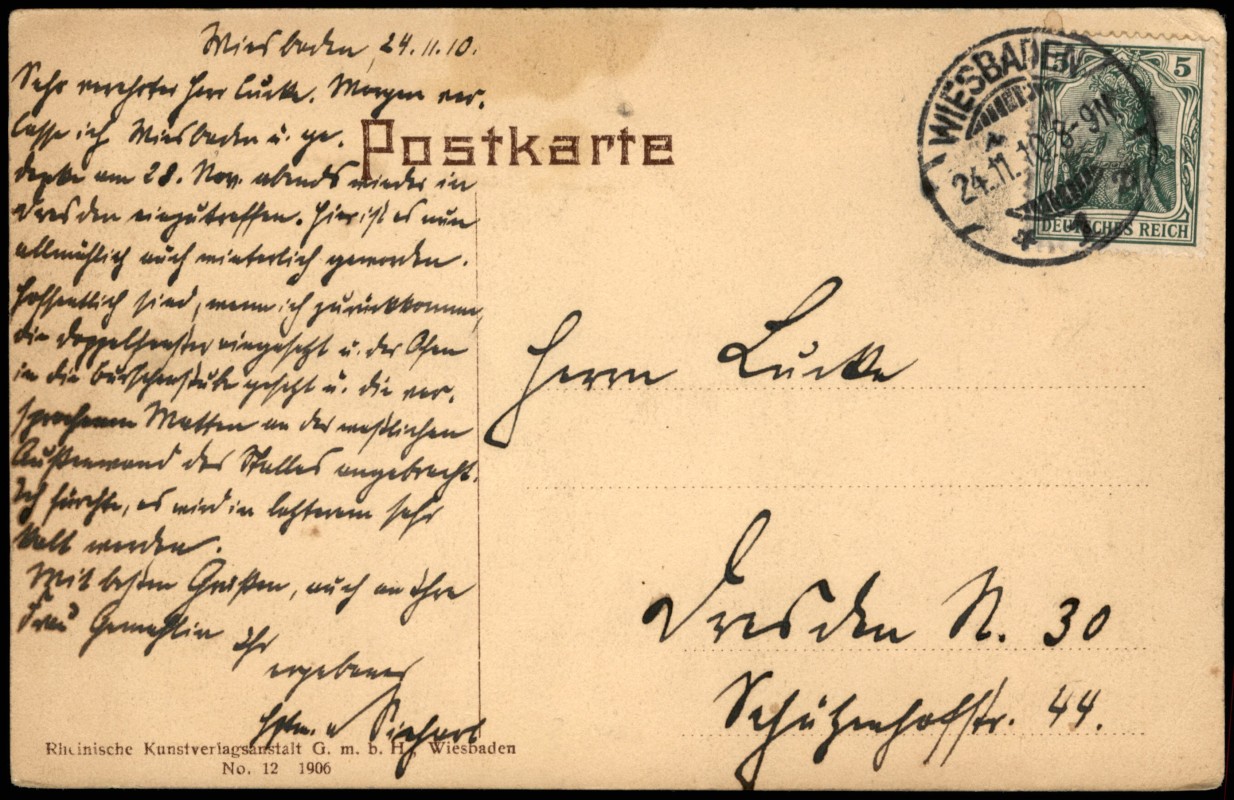 Wiesbaden, 24.11.10.
Sehr verehrter Herr Lucke. Morgen ver-
lasse ich Wiesbaden u. ge-
denke am 28. Nov. abends wieder in
Dresden einzutreffen. Hier ist es nun
allmählich auch winterlich geworden.
Hoffentlich sind, wenn ich zurückkomme,
die Doppelfenster eingesetzt u. der Ofen
in die Burschenstube gesetzt u. die ver-
sprochenen Matten an der westlichen
Außenwand des Stalles angebracht.
Ich fürchte, es wird in letzterem sehr
kalt werden.
Mit besten Grüßen, auch an Ihre
Frau Gemahlin Ihr
ergebener
Hptm. v
Rheinische Kunstverlagsanstalt G. m. b. H., Wiesbaden
No. 12 1906
Postkarte
WIESBADEN
24.11.10.8-9N
* 1
5
DEUTSCHES REICH
Herrn Lucke
Dresden N. 30
Schützenhofstr. 44.